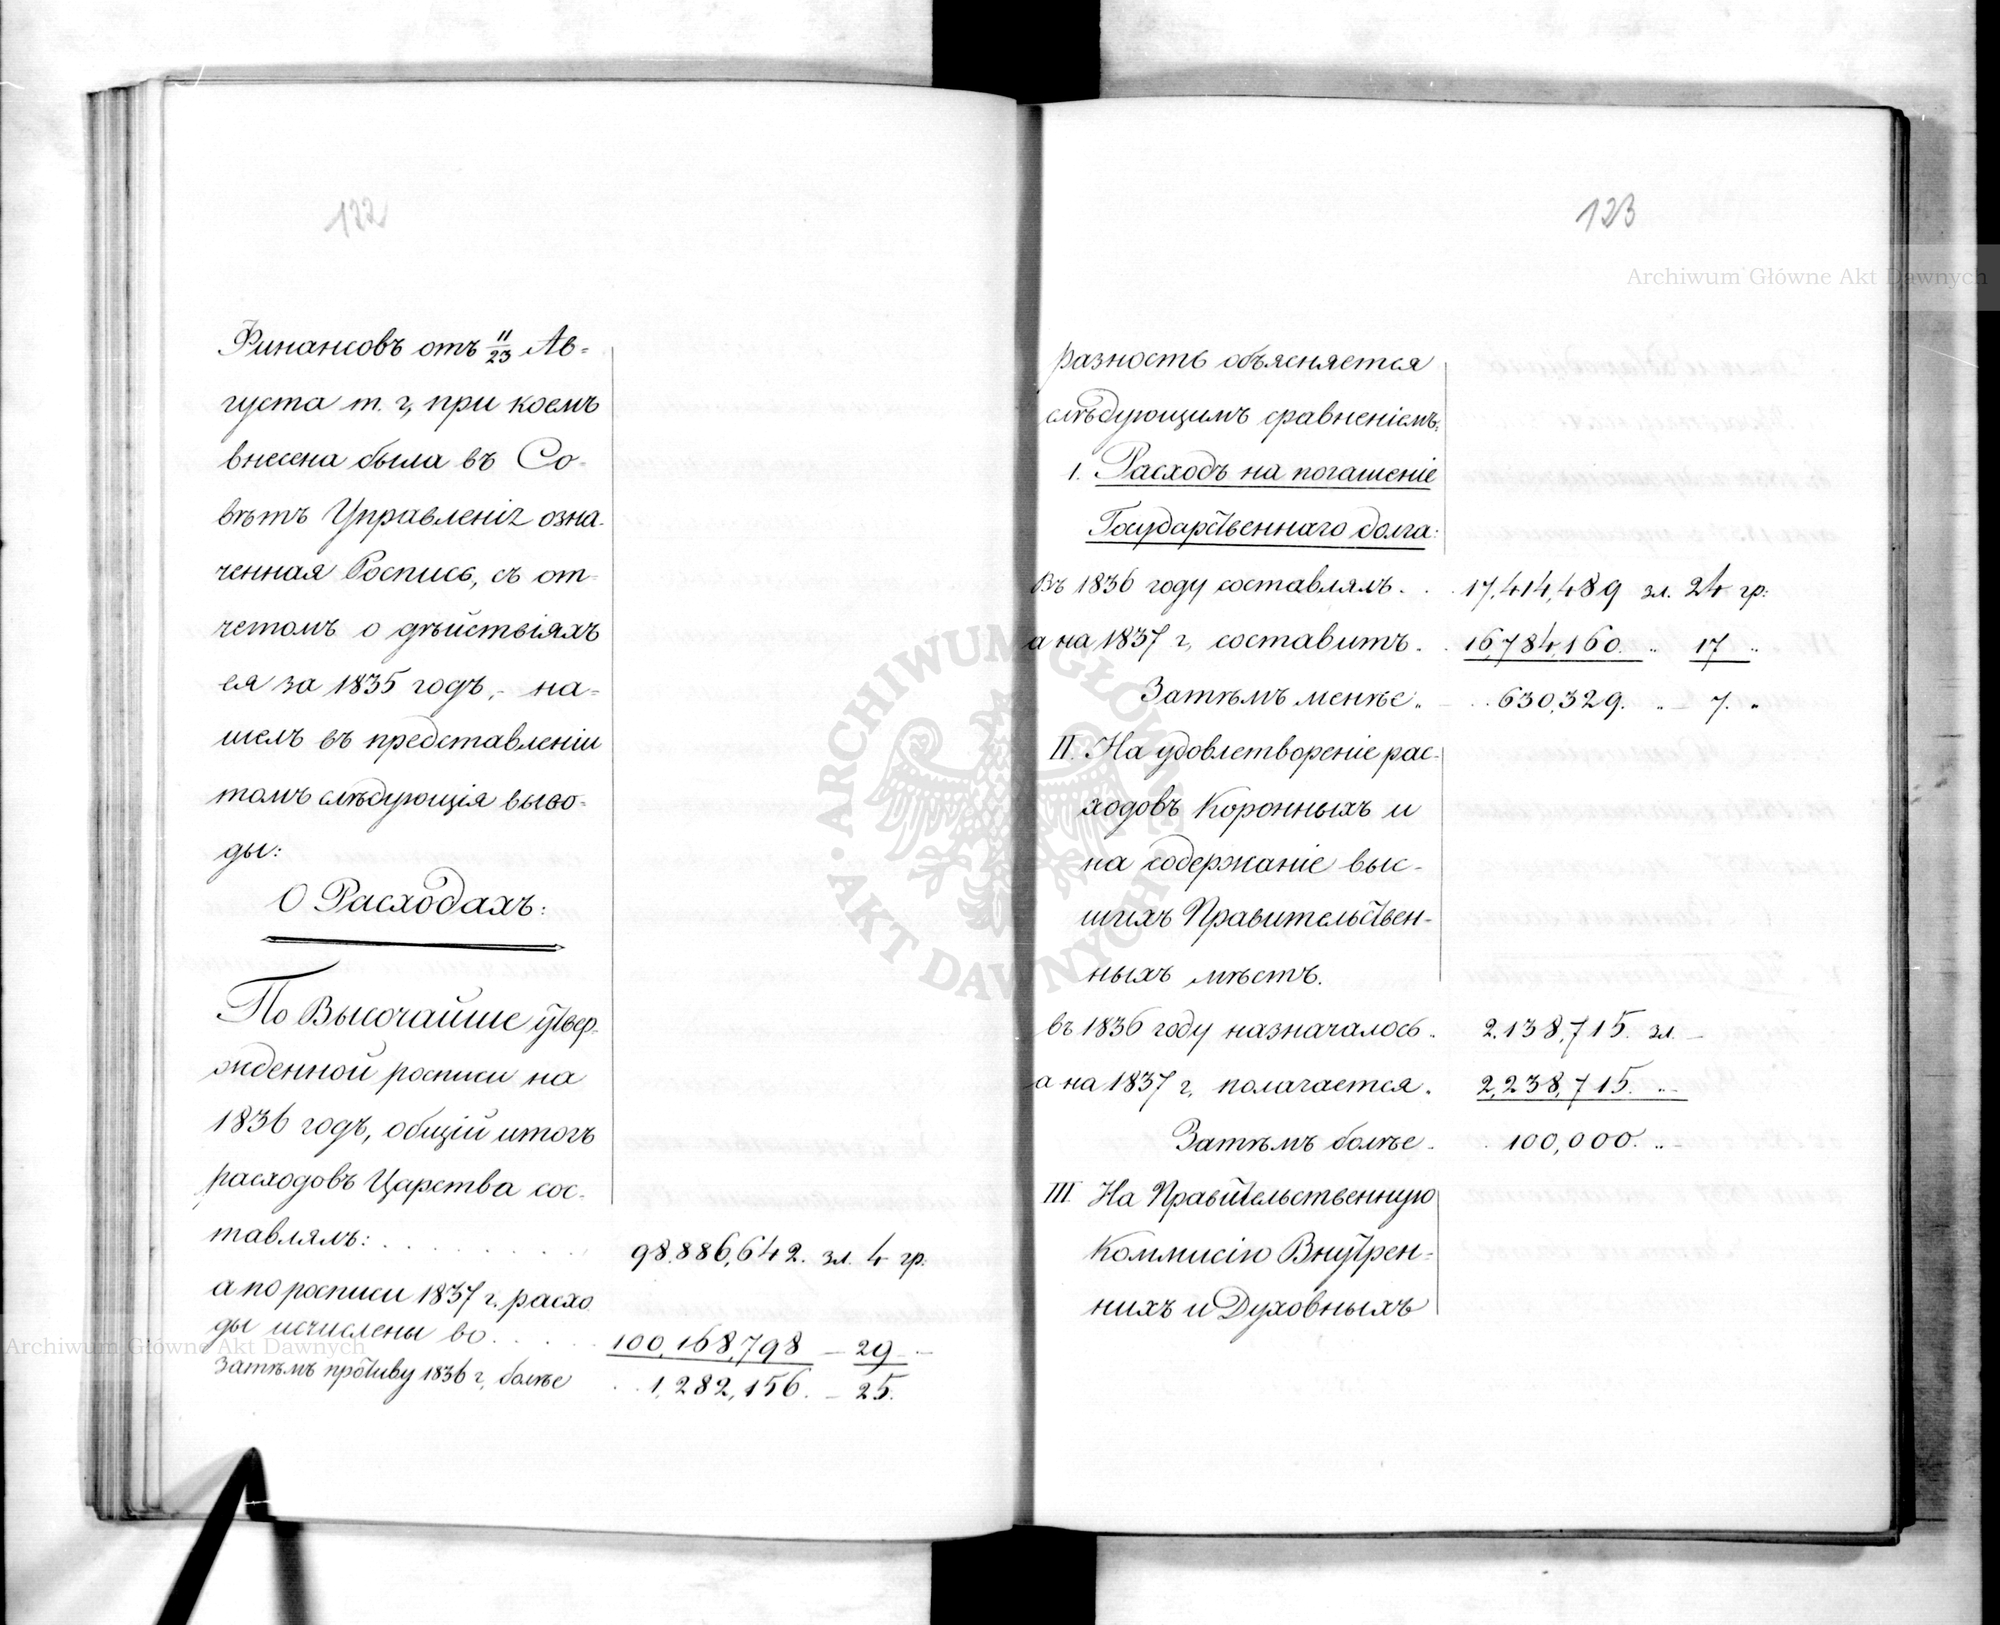 122
Финансовъ отъ 11/23 Ав=
густа т. г., при коемъ
внесена была въ Со-
вѣтъ Управленія озна-
ченная Роспись, съ от-
четомъ о дѣйствіяхъ
ея за 1835 годъ, - на=
шелъ въ представленіи
томъ слѣдующія выво=
ды:
О Расходахъ:
По Высочайше утвер-
жденной росписи на
1836 годъ, общій итогъ
расходовъ Царства сос-
тавлялъ: . . . . . 98.886,642. зл. 4 гр:
а по росписи 1837 г. расхо
ды исчислены во . . . . 100,168,798 — 29 —
затѣмъ противу 1836 г, болѣе . . 1,282,156. — 25.
123
разность объясняется
слѣдующимъ сравненіемъ:
I. Расходъ на погашеніе
Государственнаго долга:
Въ 1836 году составлялъ . . . 17,414,489 зл. 24 гр:
а на 1837 г, составитъ . . 16,784,160. " 17 "
Затѣмъ менѣе " . . 630,329. " — 7. "
II. На удовлетвореніе рас-
ходовъ Коронныхъ и
на содержаніе выс-
шихъ Правительствен-
ныхъ мѣстъ.
въ 1836 году назначалось " 2,138,715. зл. —
а на 1837 г, полагается " 2,238,715. " —
Затѣмъ болѣе . . 100,000. " —
III. На Правительственную
Коммисію Внутрен=
нихъ и Духовныхъ
Archiwum Główne Akt Dawnych
Archiwum Główne Akt Dawnych
ARCHIWUM GŁÓWNE · AKT DAWNYCH ·